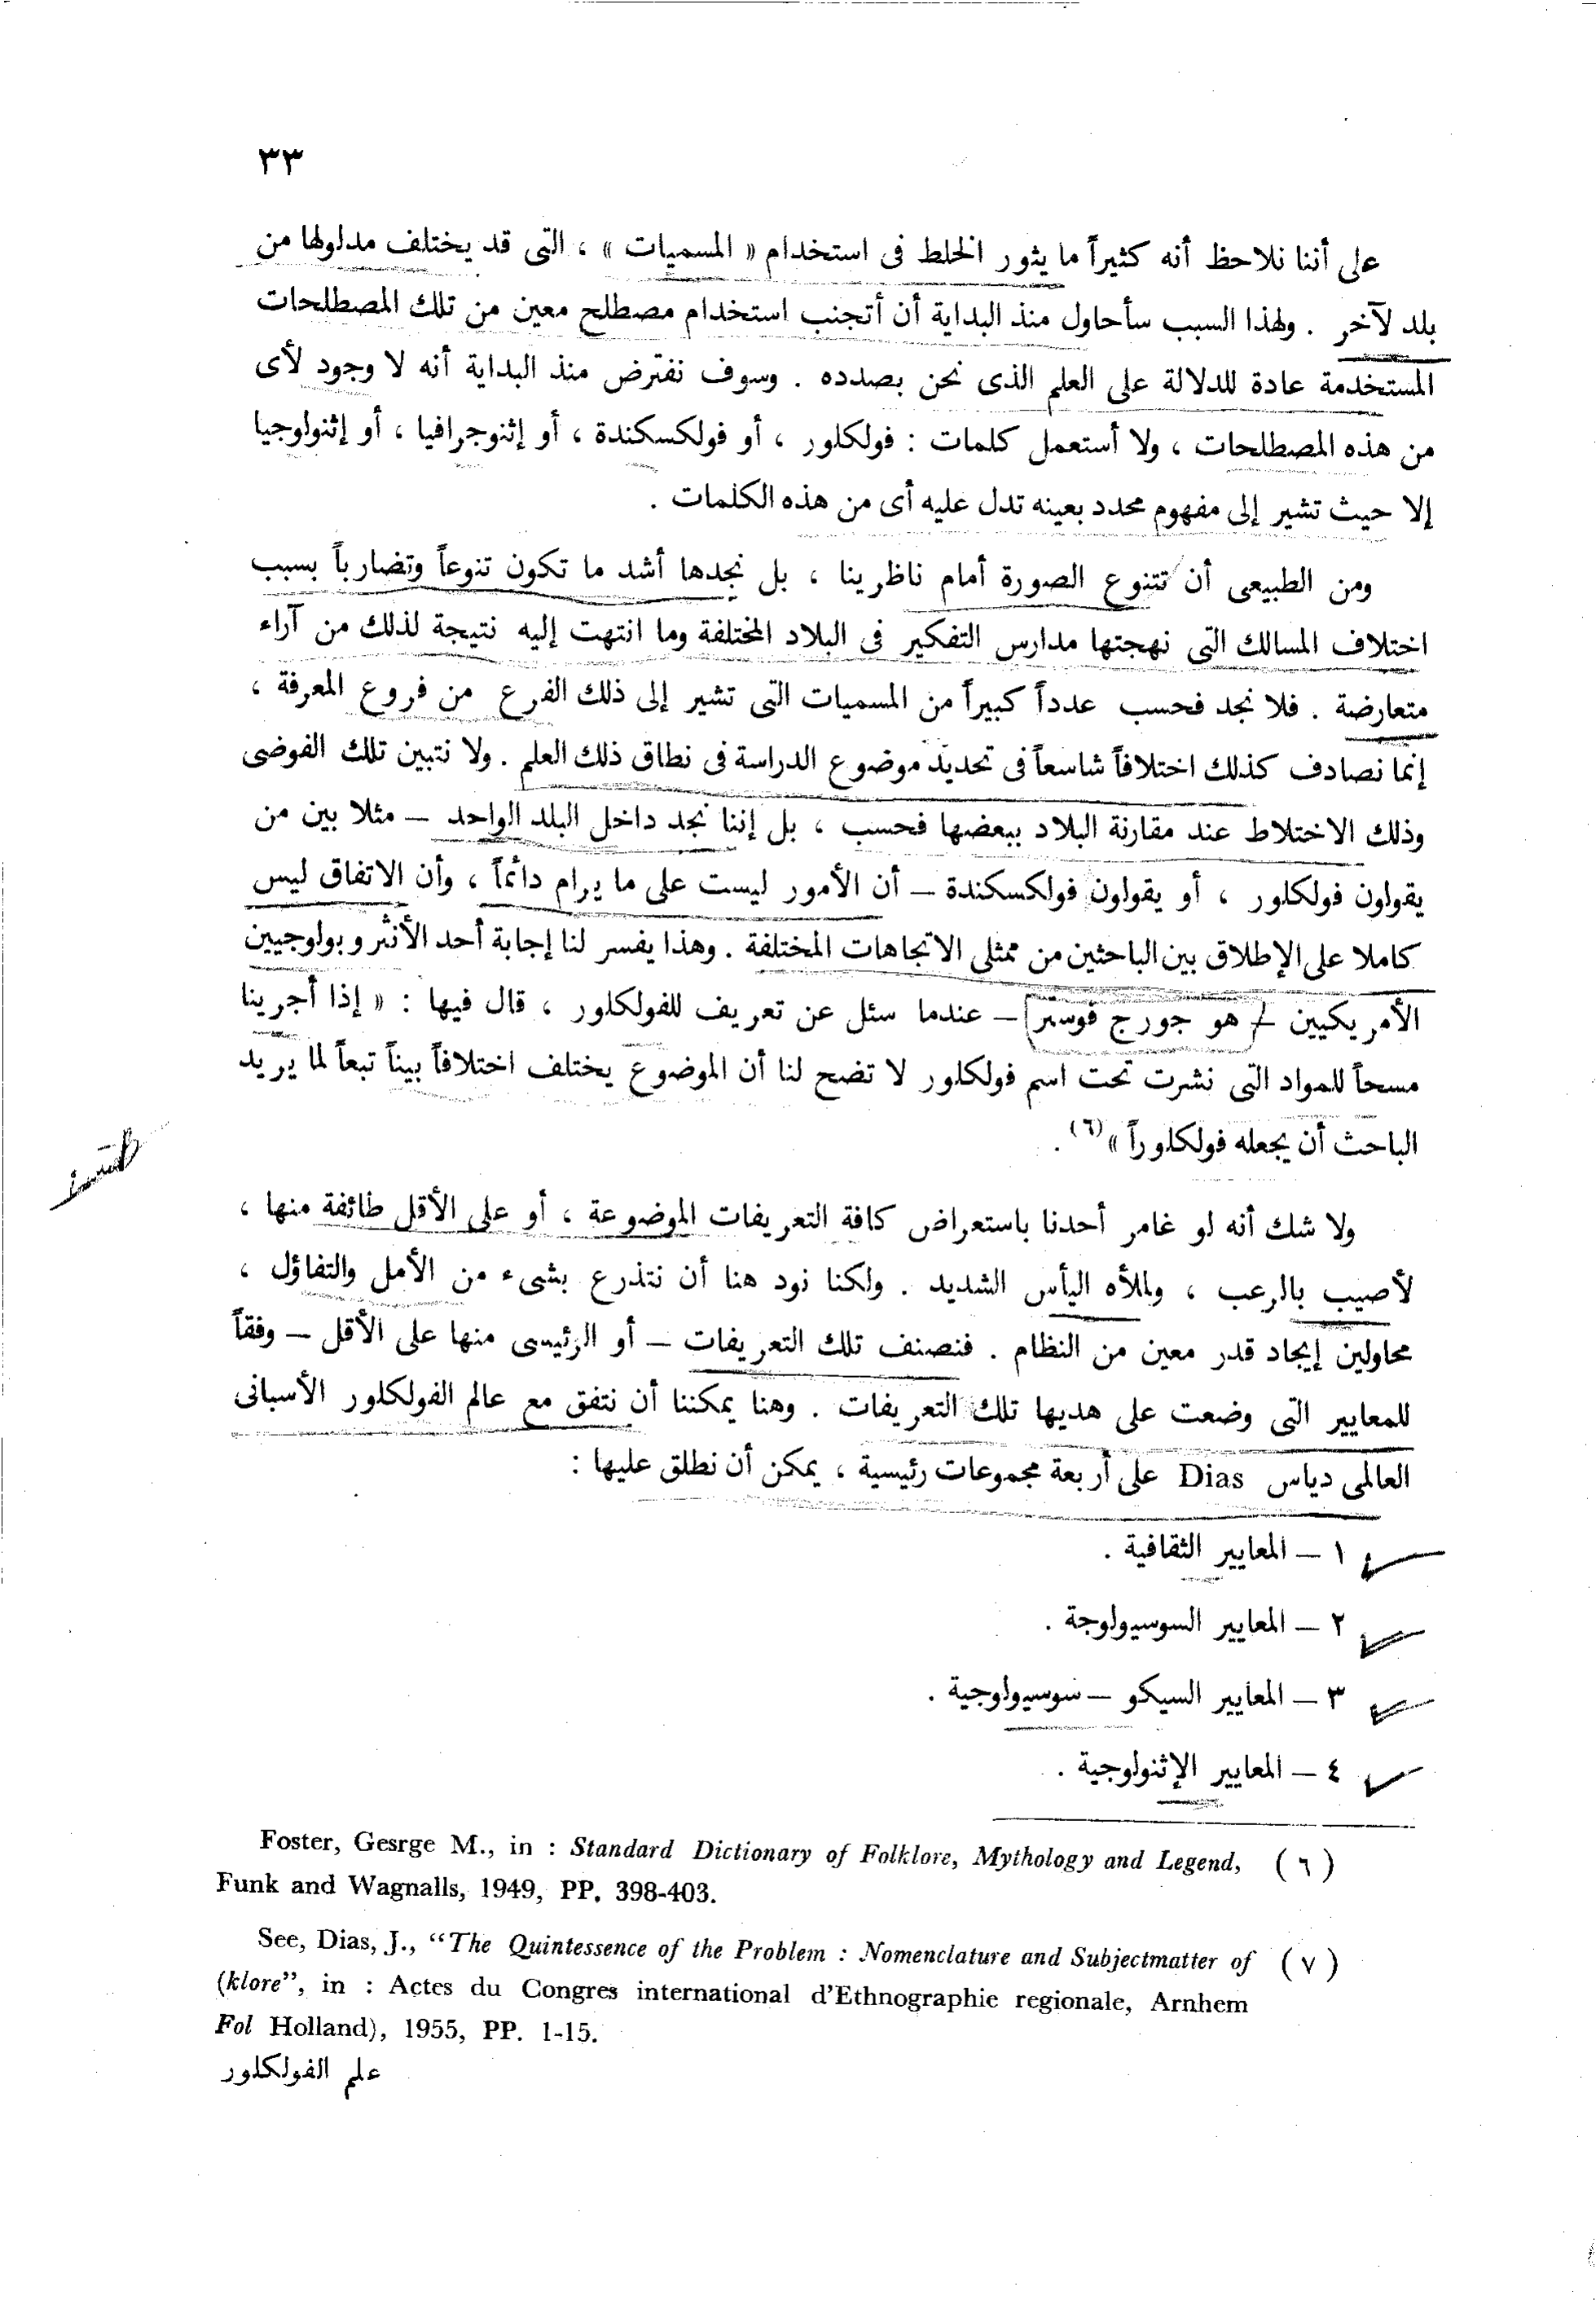 ٣٣
على أننا نلاحظ أنه كثيراً ما يثور الخلط فى استخدام « المسميات » ، التى قد يختلف مدلولها من
بلد لآخر . ولهذا السبب سأحاول منذ البداية أن أتجنب استخدام مصطلح معين من تلك المصطلحات
المستخدمة عادة للدلالة على العلم الذى نحن بصدده . وسوف نفترض منذ البداية أنه لا وجود لأى
من هذه المصطلحات ، ولا أستعمل كلمات : فولكلور ، أو فولكسكندة ، أو إثنوجرافيا ، أو إثنولوجيا
إلا حيث تشير إلى مفهوم محدد بعينه تدل عليه أى من هذه الكلمات .
ومن الطبيعى أن تتنوع الصورة أمام ناظرينا ، بل نجدها أشد ما تكون تنوعاً وتضارباً بسبب
اختلاف المسالك التى نهجتها مدارس التفكير فى البلاد المختلفة وما انتهت إليه نتيجة لذلك من آراء
متعارضة . فلا نجد فحسب عدداً كبيراً من المسميات التى تشير إلى ذلك الفرع من فروع المعرفة ،
إنما نصادف كذلك اختلافاً شاسعاً فى تحديد موضوع الدراسة فى نطاق ذلك العلم . ولا نتبين تلك الفوضى
وذلك الاختلاط عند مقارنة البلاد ببعضها فحسب ، بل إننا نجد داخل البلد الواحد – مثلا بين من
يقولون فولكلور ، أو يقولون فولكسكندة – أن الأمور ليست على ما يرام دائماً ، وأن الاتفاق ليس
كاملا على الإطلاق بين الباحثين من ممثلى الاتجاهات المختلفة . وهذا يفسر لنا إجابة أحد الأنثروبولوجيين
الأمريكيين – هو جورج فوستر – عندما سئل عن تعريف للفولكلور ، قال فيها : « إذا أجرينا
مسحاً للمواد التى نشرت تحت اسم فولكلور لا تضح لنا أن الموضوع يختلف اختلافاً بيناً تبعاً لما يريد
الباحث أن يجعله فولكلوراً »(٦) .
ولا شك أنه لو غامر أحدنا باستعراض كافة التعريفات الموضوعة ، أو على الأقل طائفة منها ،
لأصيب بالرعب ، ولملأه اليأس الشديد . ولكنا نود هنا أن نتذرع بشىء من الأمل والتفاؤل ،
محاولين إيجاد قدر معين من النظام . فنصنف تلك التعريفات – أو الرئيسى منها على الأقل – وفقاً
للمعايير التى وضعت على هديها تلك التعريفات . وهنا يمكننا أن نتفق مع عالم الفولكلور الأسبانى
العالمى دياس Dias على أربعة مجموعات رئيسية ، يمكن أن نطلق عليها :
١ – المعايير الثقافية .
٢ – المعايير السوسيولوجة .
٣ – المعايير السيكو – سوسيولوجية .
٤ – المعايير الإثنولوجية .
(٦) Foster, Gesrge M., in : Standard Dictionary of Folklore, Mythology and Legend,
Funk and Wagnalls, 1949, PP. 398-403.
(٧) See, Dias, J., “The Quintessence of the Problem : Nomenclature and Subjectmatter of
(klore”, in : Actes du Congres international d’Ethnographie regionale, Arnhem
Fol Holland), 1955, PP. 1-15.
علم الفولكلور